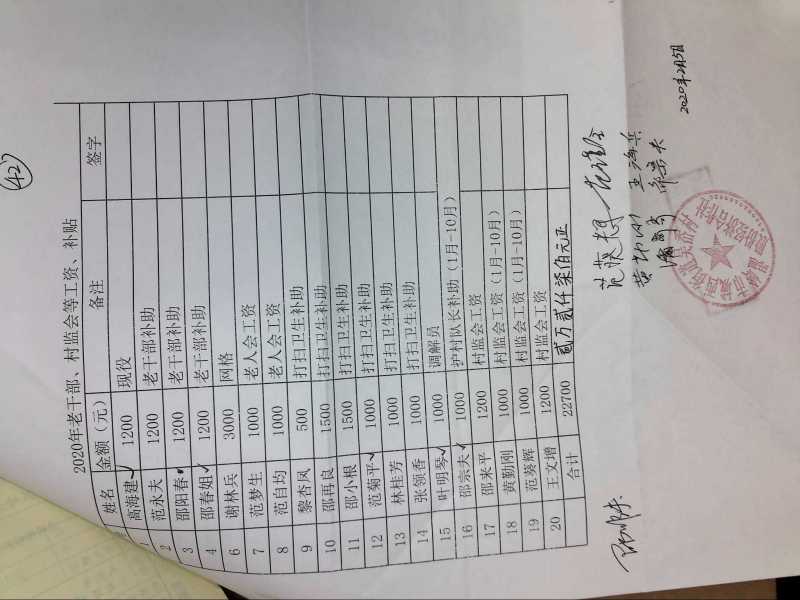 42
2020年老干部、村监会等工资、补贴
姓名 金额（元） 备注 签字
1 高海建 1200 现役
2 范永夫 1200 老干部补助
3 邵阳春 1200 老干部补助
4 邵春姐 1200 老干部补助
6 谢林兵 3000 网格
7 范梦生 1000 老人会工资
8 范自均 1000 老人会工资
9 黎杏凤 500 打扫卫生补助
10 邵再良 1500 打扫卫生补助
11 邵小根 1500 打扫卫生补助
12 范菊平 1000 打扫卫生补助
13 林桂芳 1000 打扫卫生补助
14 张领香 1000 打扫卫生补助
15 叶明琴 1000 调解员
16 邵宗夫 1000 护村队长补助（1月-10月）
17 邵来平 1200 村监会工资
18 黄勤刚 1000 村监会工资（1月-10月）
19 范葵辉 1000 村监会工资（1月-10月）
20 王文增 1200 村监会工资
合计 22700 贰万贰仟柒佰元正
2020年2月5日